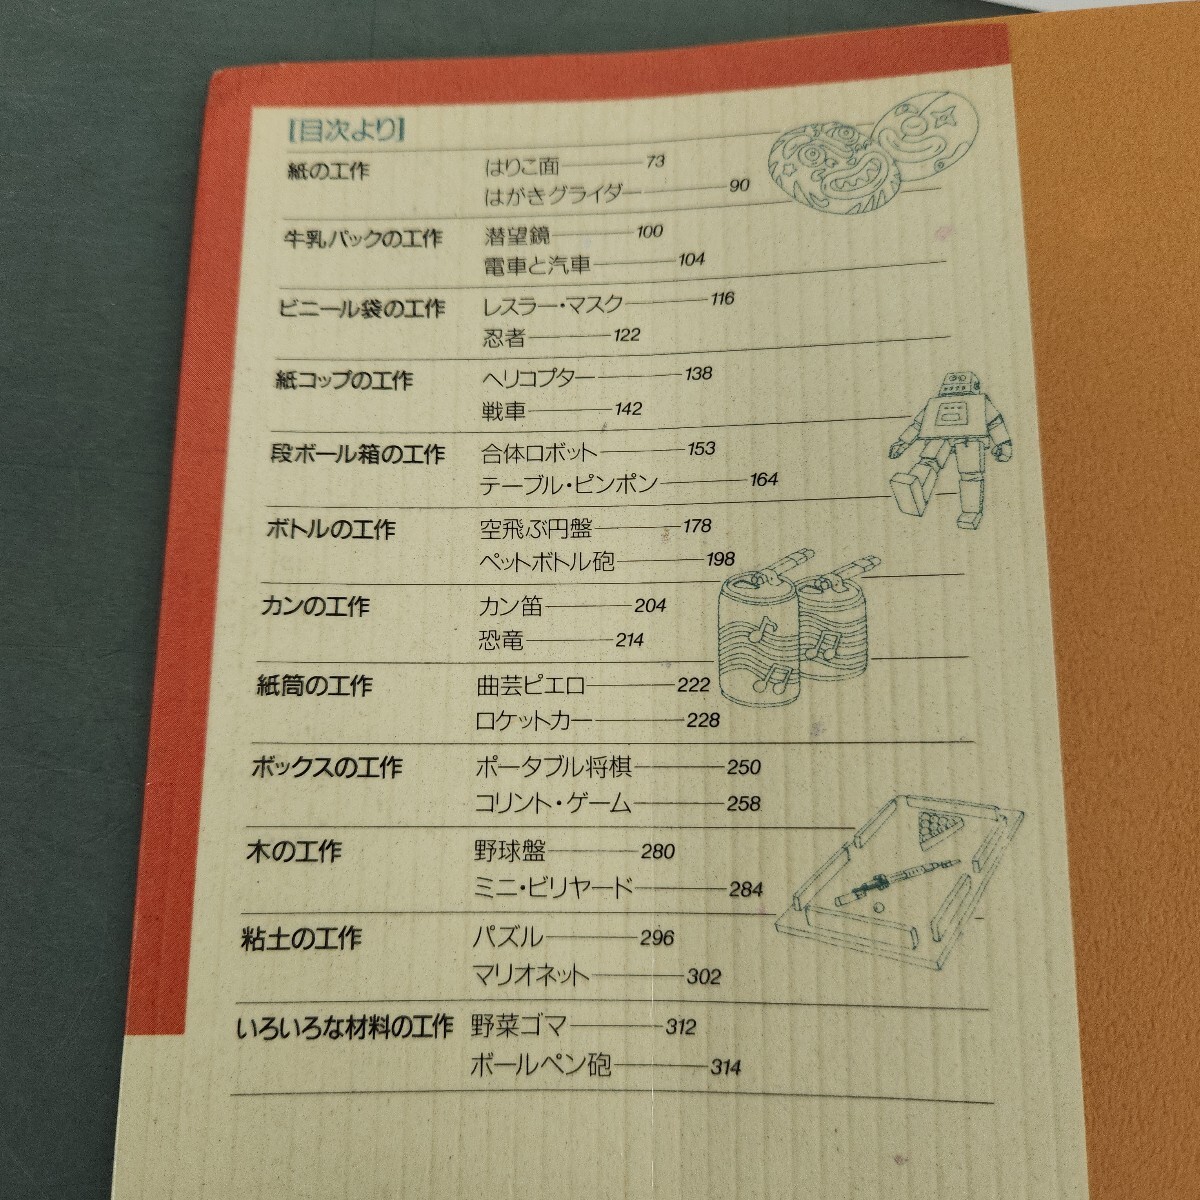 [目次より]
紙の工作 はりこ面 73
はがきグライダー 90
牛乳パックの工作 潜望鏡 100
電車と汽車 104
ビニール袋の工作 レスラー・マスク 116
忍者 122
紙コップの工作 ヘリコプター 138
戦車 142
段ボール箱の工作 合体ロボット 153
テーブル・ピンポン 164
ボトルの工作 空飛ぶ円盤 178
ペットボトル砲 198
カンの工作 カン笛 204
恐竜 214
紙筒の工作 曲芸ピエロ 222
ロケットカー 228
ボックスの工作 ポータブル将棋 250
コリント・ゲーム 258
木の工作 野球盤 280
ミニ・ビリヤード 284
粘土の工作 パズル 296
マリオネット 302
いろいろな材料の工作 野菜ゴマ 312
ボールペン砲 314